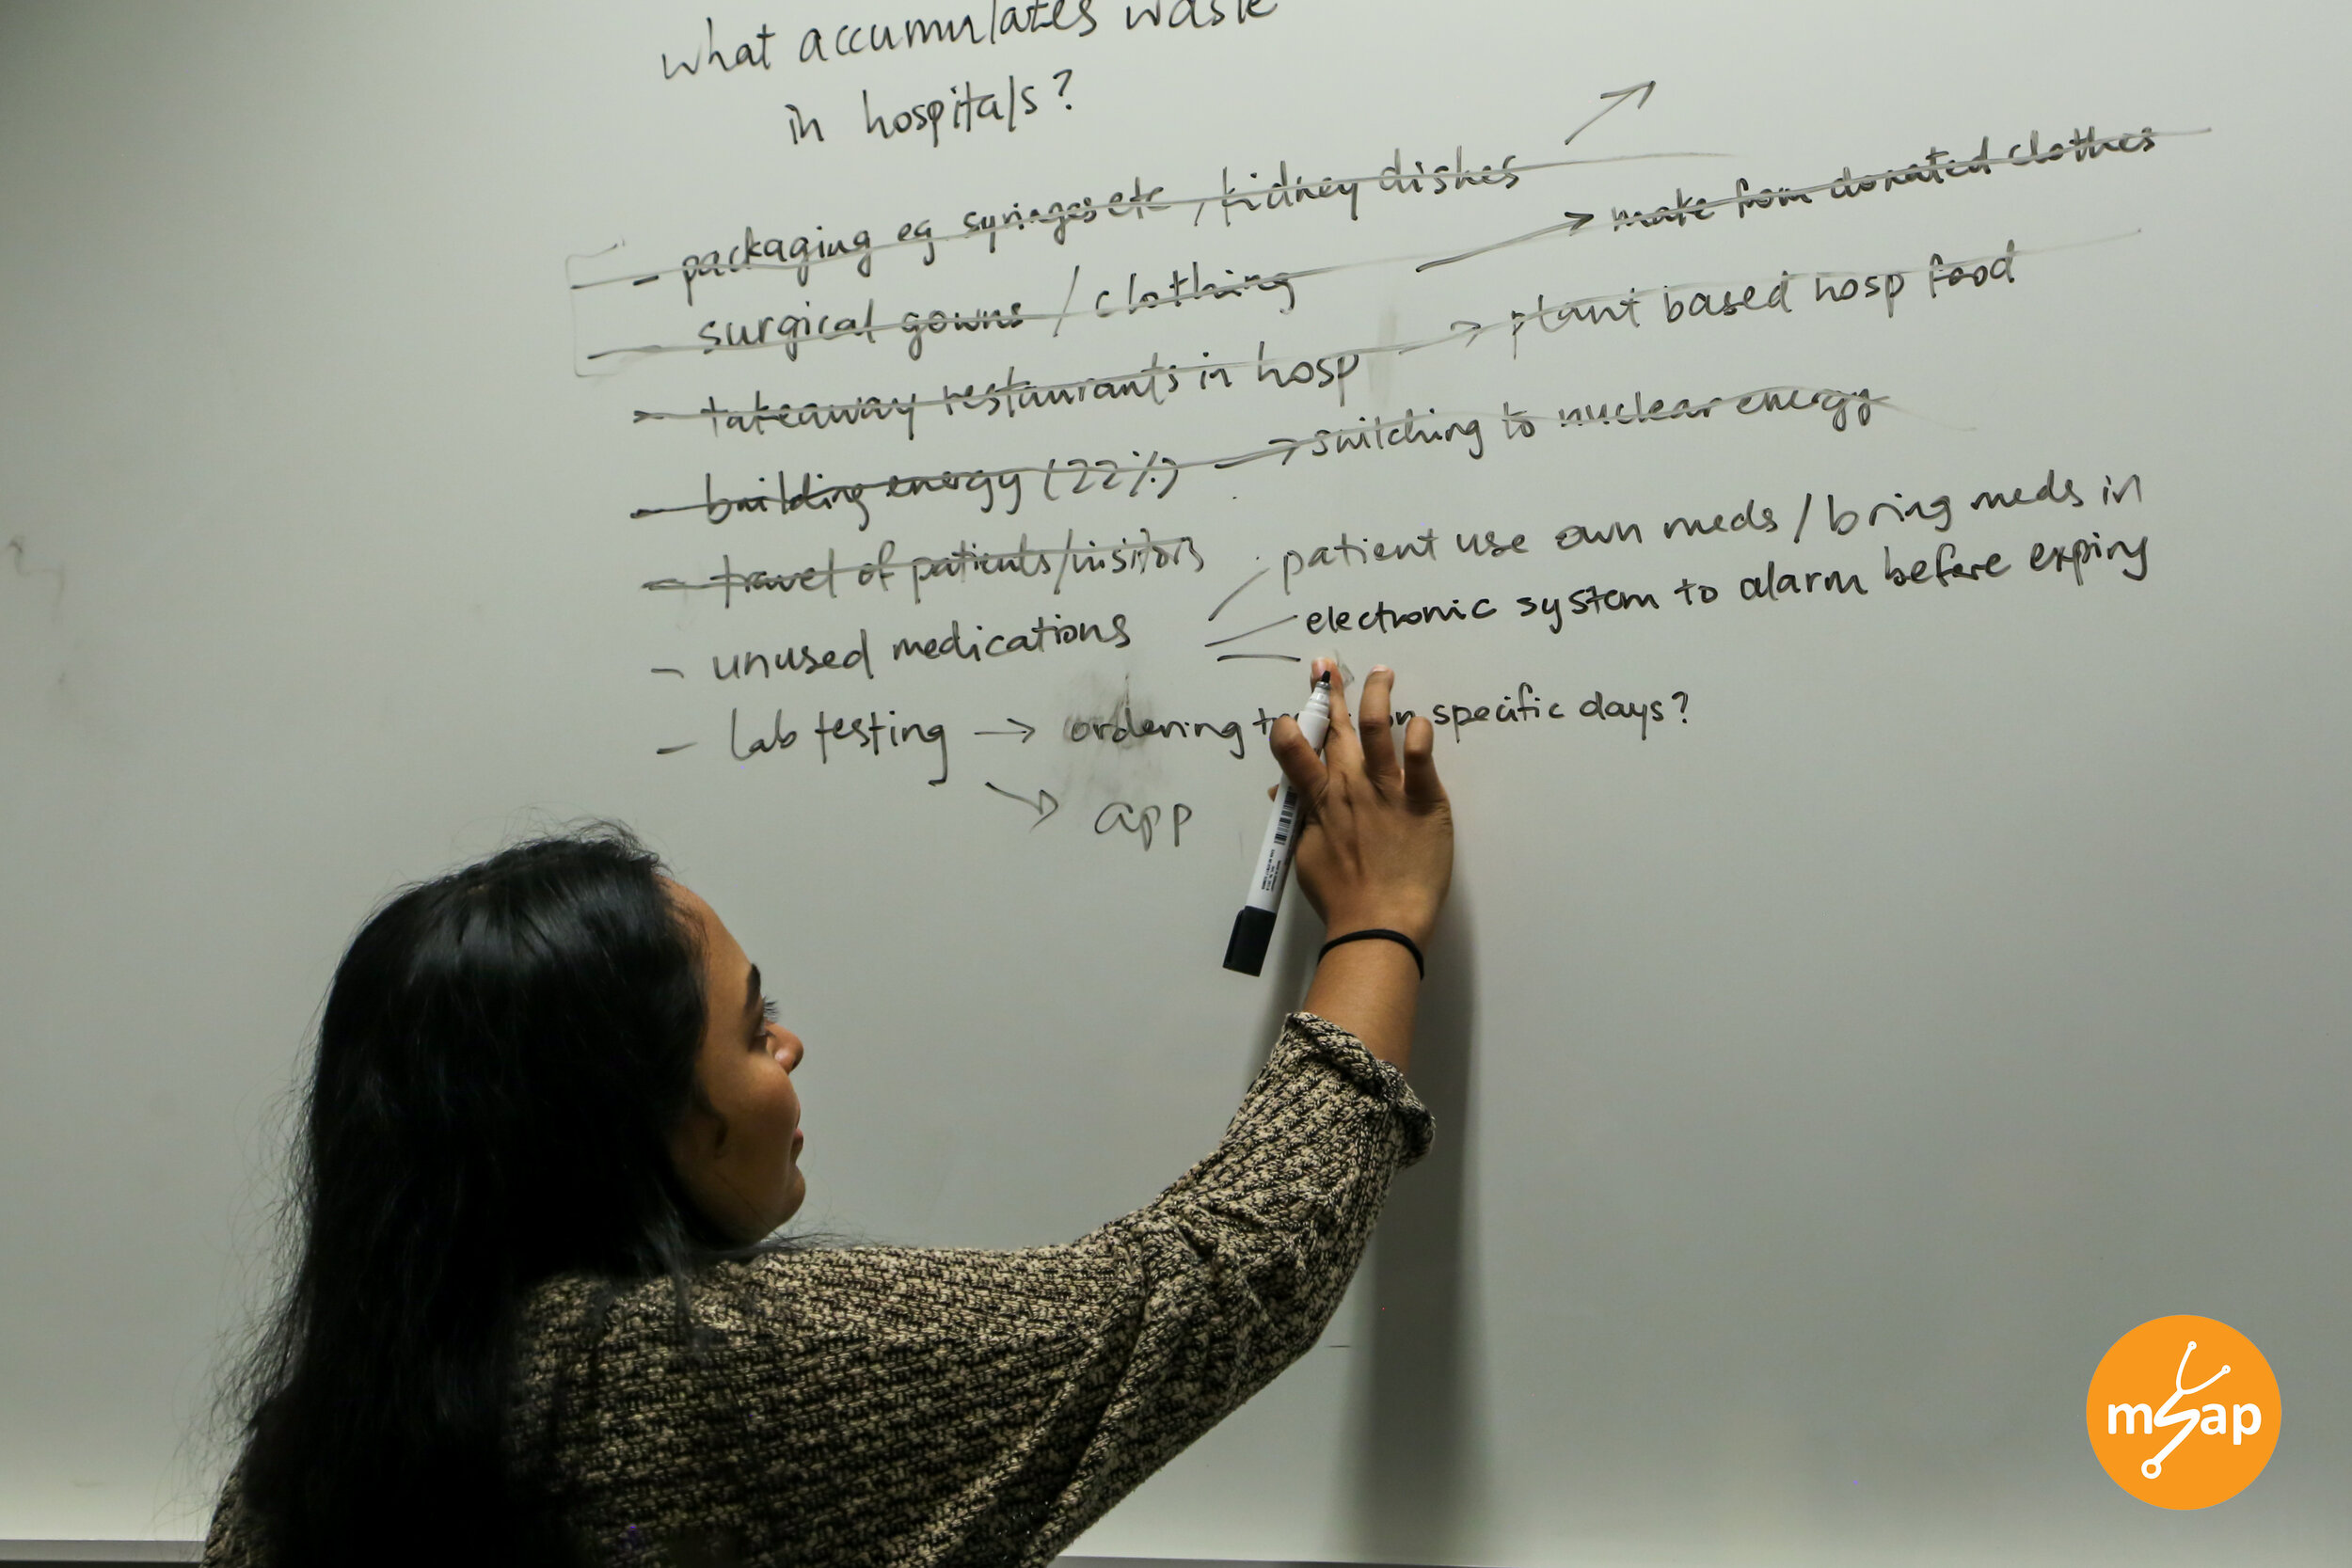 what accumulates waste
in hospitals?
- packaging eg syringes etc, kidney dishes
- surgical gowns / clothing → make from donated clothes
- takeaway restaurants in hosp → plant based hosp food
- building energy (22%) → switching to nuclear energy
- travel of patients/visitors
patient use own meds / bring meds in
- unused medications
electronic system to alarm before expiring
- lab testing → ordering on specific days?
→ app
msap